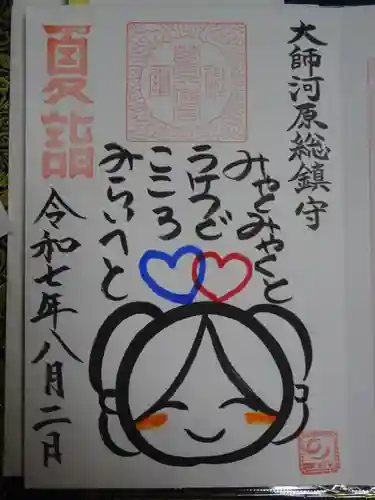 大師河原総鎮守
みやとみやくと
うけつど
こころ
みらいへと
夏詣
令和七年八月二日